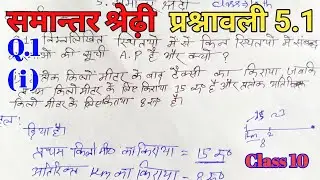 समान्तर श्रेढ़ी प्रश्नावली 5.1
Q.1
(i)
स्थितियों में से किन स्थितियों में संबद्ध
की सूची A.P है और क्यों ?
किलो मीटर के बाद टैक्सी का किराया, जबकि
प्रथम किलो मीटर के लिए किराया 15 रु० है और प्रत्येक अतिरिक्त
किलो मीटर के लिए किराया 8 रु० है।
दिया है।
प्रथम किलोमीटर का किराया = 15 रु०
अतिरिक्त Km का किराया = 8 रु०
Class 10